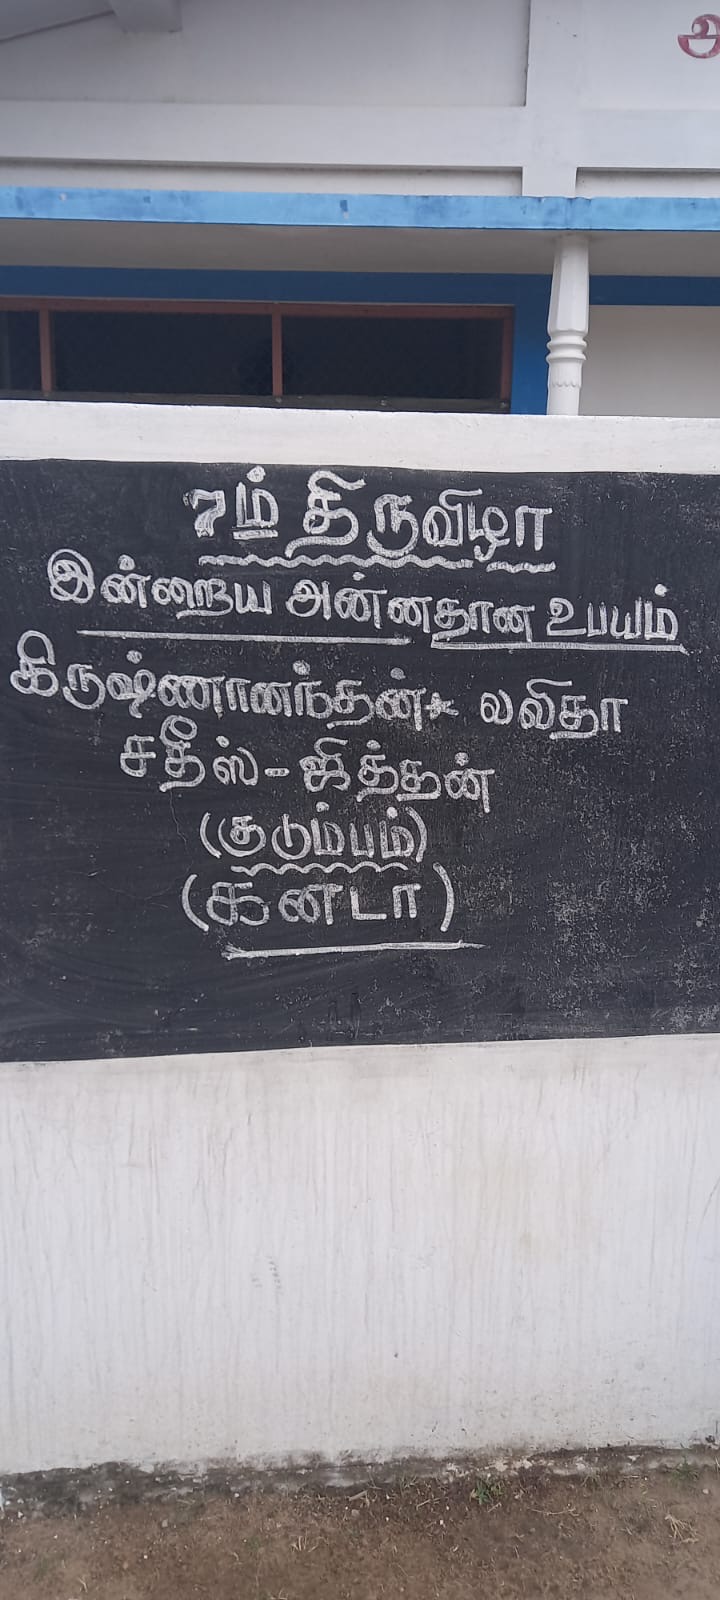 7ம் திருவிழா
இன்றைய அன்னதான உபயம்
கிருஷ்ணானந்தன் * லவிதா
சதீஸ் - ஜித்தன்
(குடும்பம்)
(கனடா)